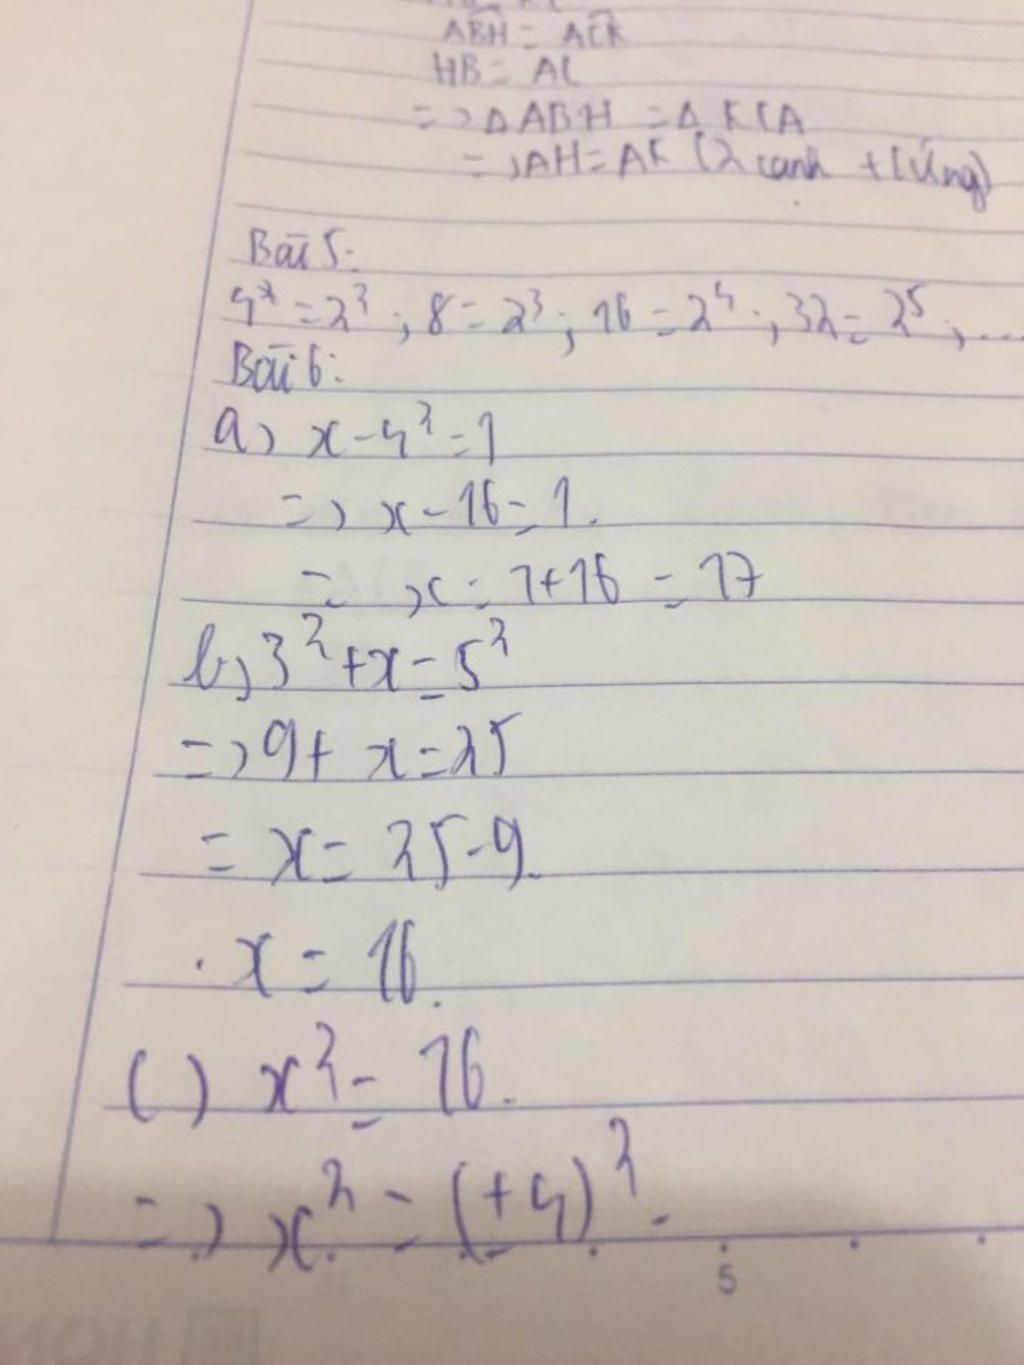 ABH = ACK
HB = AC
=> Δ ABH = Δ KCA
=> AH = AK (2 cạnh t/ứng)
Bài 5:
4* = 2²; 8 = 2³; 16 = 2⁴; 32 = 2⁵; ...
Bài 6:
a) x - 4² = 1
=> x - 16 = 1.
= x = 1 + 16 = 17
b) 3² + x = 5²
=> 9 + x = 25
= x = 25 - 9.
x = 16.
c) x² = 16.
=> x² = (±4)².
5